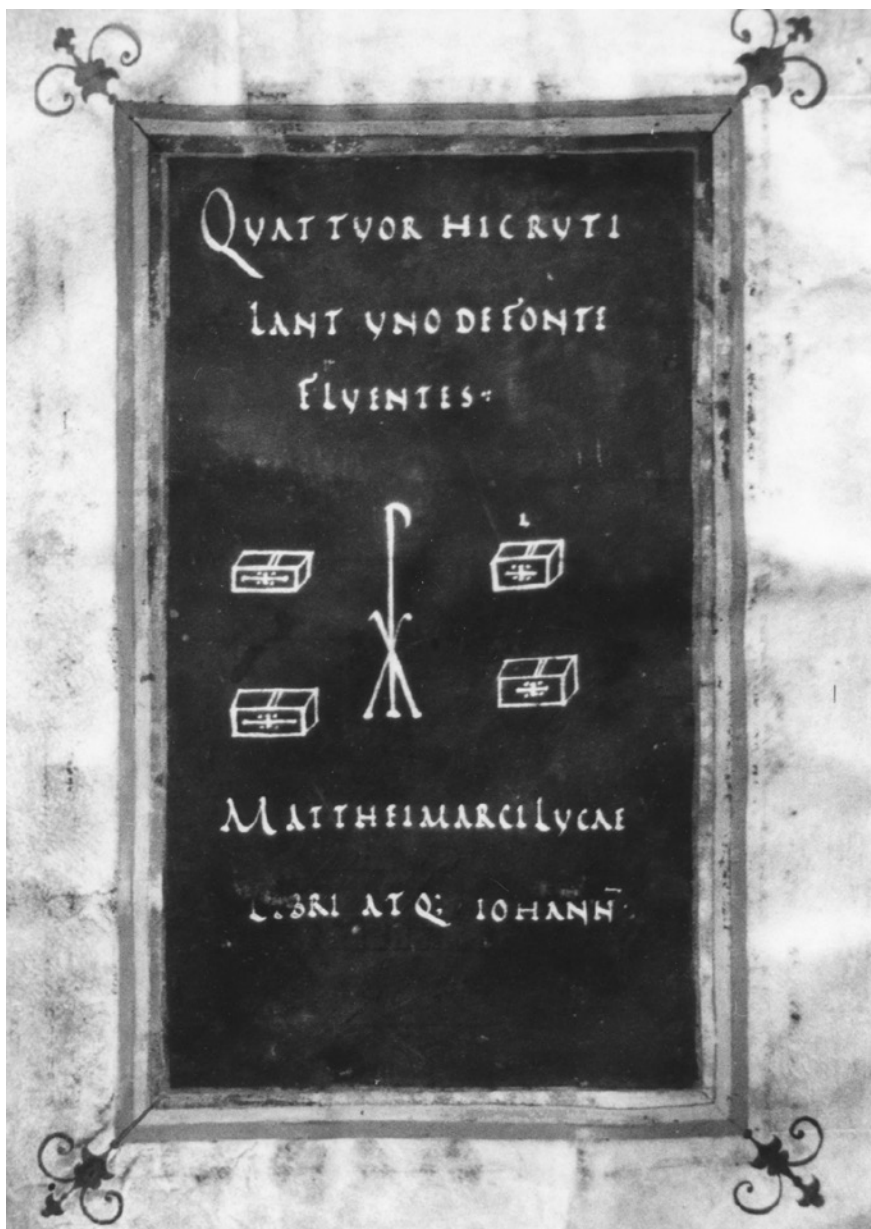 QVATTVOR HIC RVTI
LANT VNO DE FONTE
FLVENTES
L
MATTHEI MARCI LVCAE
LIBRI ATQ: IOHANN̄